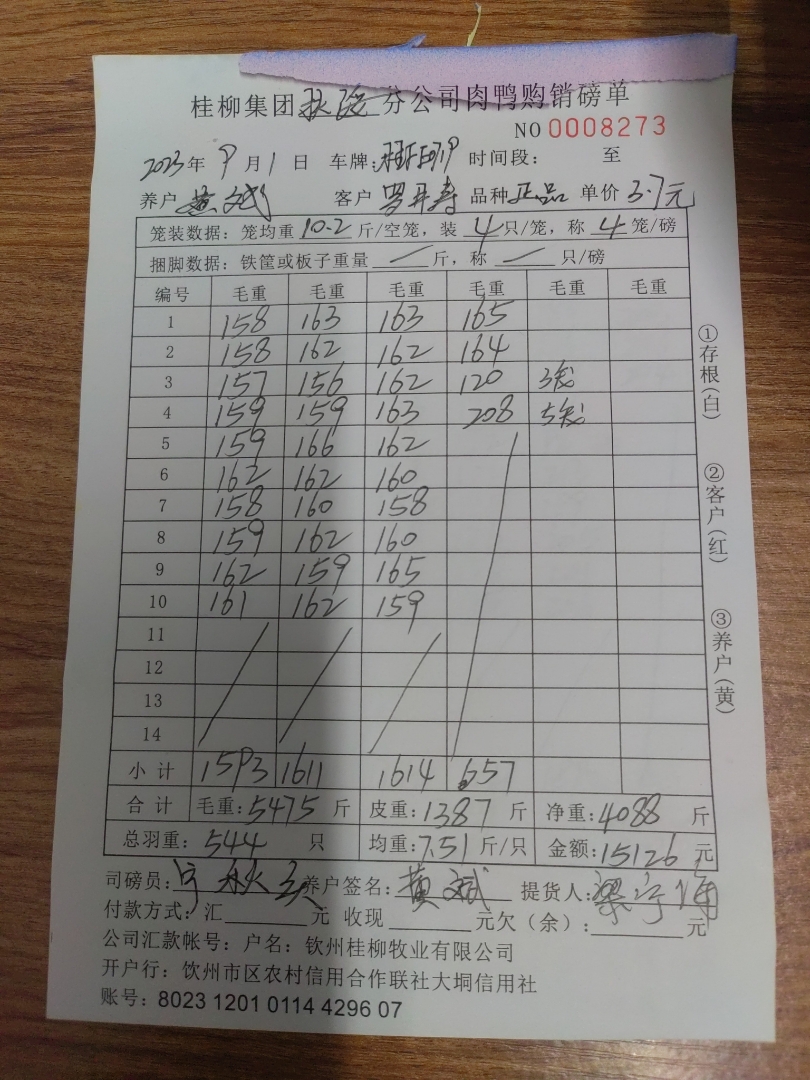 桂柳集团扶绥分公司肉鸭购销磅单
NO 0008273
2023年 9月 1日 车牌: 时间段: 至
养户 黄斌 客户 品种 正品 单价 3.7元
笼装数据: 笼均重 10.2 斤/空笼, 装 4 只/笼, 称 4 笼/磅
捆脚数据: 铁筐或板子重量 / 斤, 称 / 只/磅
编号 毛重 毛重 毛重 毛重 毛重 毛重
1 158 163 163 165
2 158 162 162 164
3 157 156 162 120 3
4 159 159 163 208 5
5 159 166 162
6 162 162 160
7 158 160 158
8 159 162 160
9 162 159 165
10 161 162 159
11
12
13
14
小计 1593 1611 1614 657
合计 毛重: 5475 斤 皮重: 1387 斤 净重: 4088 斤
总羽重: 544 只 均重: 7.51 斤/只 金额: 15126 元
司磅员: 养户签名: 黄斌 提货人:
付款方式: 汇 元 收现 元欠(余): 元
公司汇款帐号: 户名: 钦州桂柳牧业有限公司
开户行: 钦州市区农村信用合作联社大垌信用社
账号: 8023 1201 0114 4296 07
①存根(白)
②客户(红)
③养户(黄)